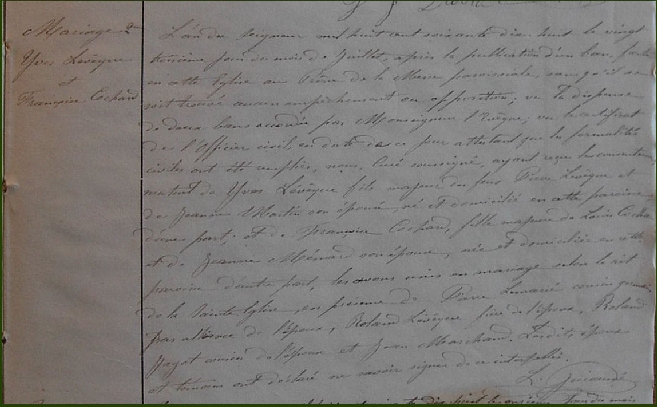 Mariage de
Yves Levêque
et
Françoise Cochard
L'an du Seigneur mil huit cent soixante dix huit le vingt
troisième jour du mois de Juillet, après la publication d'un ban faite
en cette Eglise au Prône de la Messe paroissiale, sans qu'il se
soit trouvé aucun empêchement ou opposition, vu la dispense
de deux bans accordée par Monseigneur l'Evêque; vu le certificat
de l'Officier civil en date de ce jour attestant que les formalités
civiles ont été remplies, nous, Curé soussigné, ayant reçu le consentement
mutuel de Yves Levêque fils majeur de feu Pierre Levêque et
de Jeanne Martin son épouse, né et domicilié en cette paroisse
d'une part; et de Françoise Cochard, fille majeure de Louis Cochard
et de Jeanne Ménard son épouse, née et domiciliée en cette
paroisse d'autre part, les avons unis en mariage selon le rit
de la Sainte Eglise, en présence de Pierre cousin germain
par alliance de l'époux, Roland Levêque frère de l'époux, Roland
de l'époux et Jean Marchand. Lesdits époux
et témoins ont déclaré ne savoir signer de ce interpellés.
L.